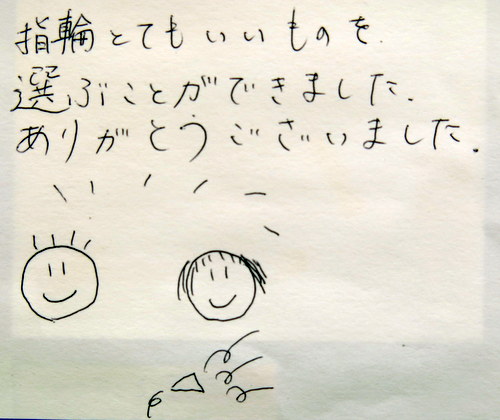 指輪とてもいいものを
選ぶことができました.
ありがとうございました.